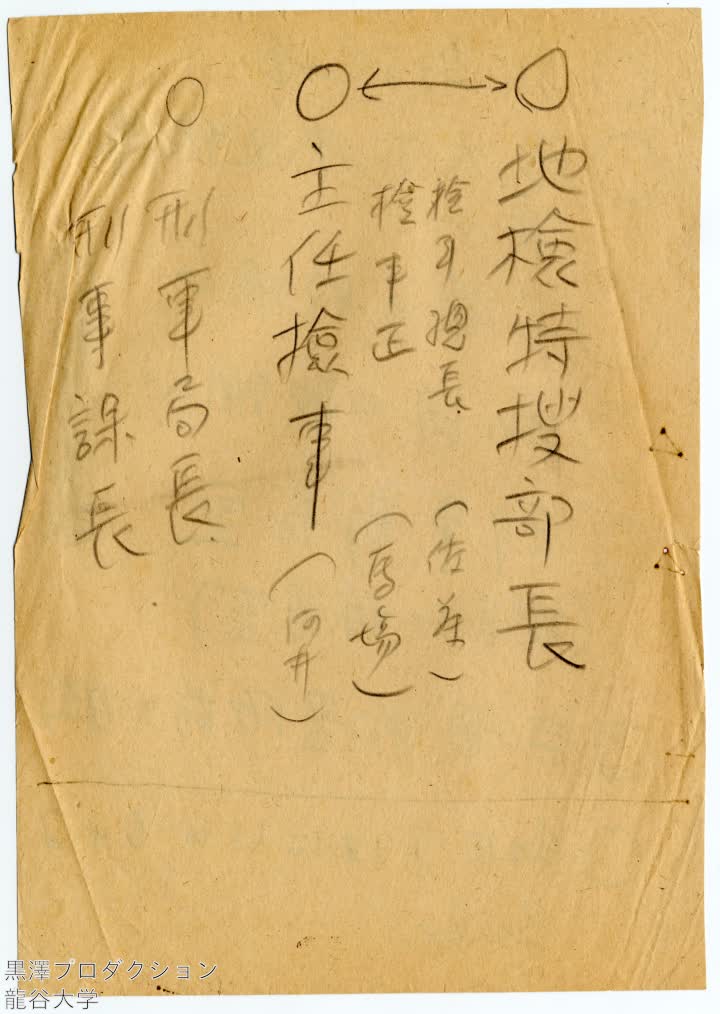 ○地検特捜部長
検事総長(佐藤)
検事正(馬場)
○主任検事(河井)
○刑事局長
刑事課長
黒澤プロダクション
龍谷大学